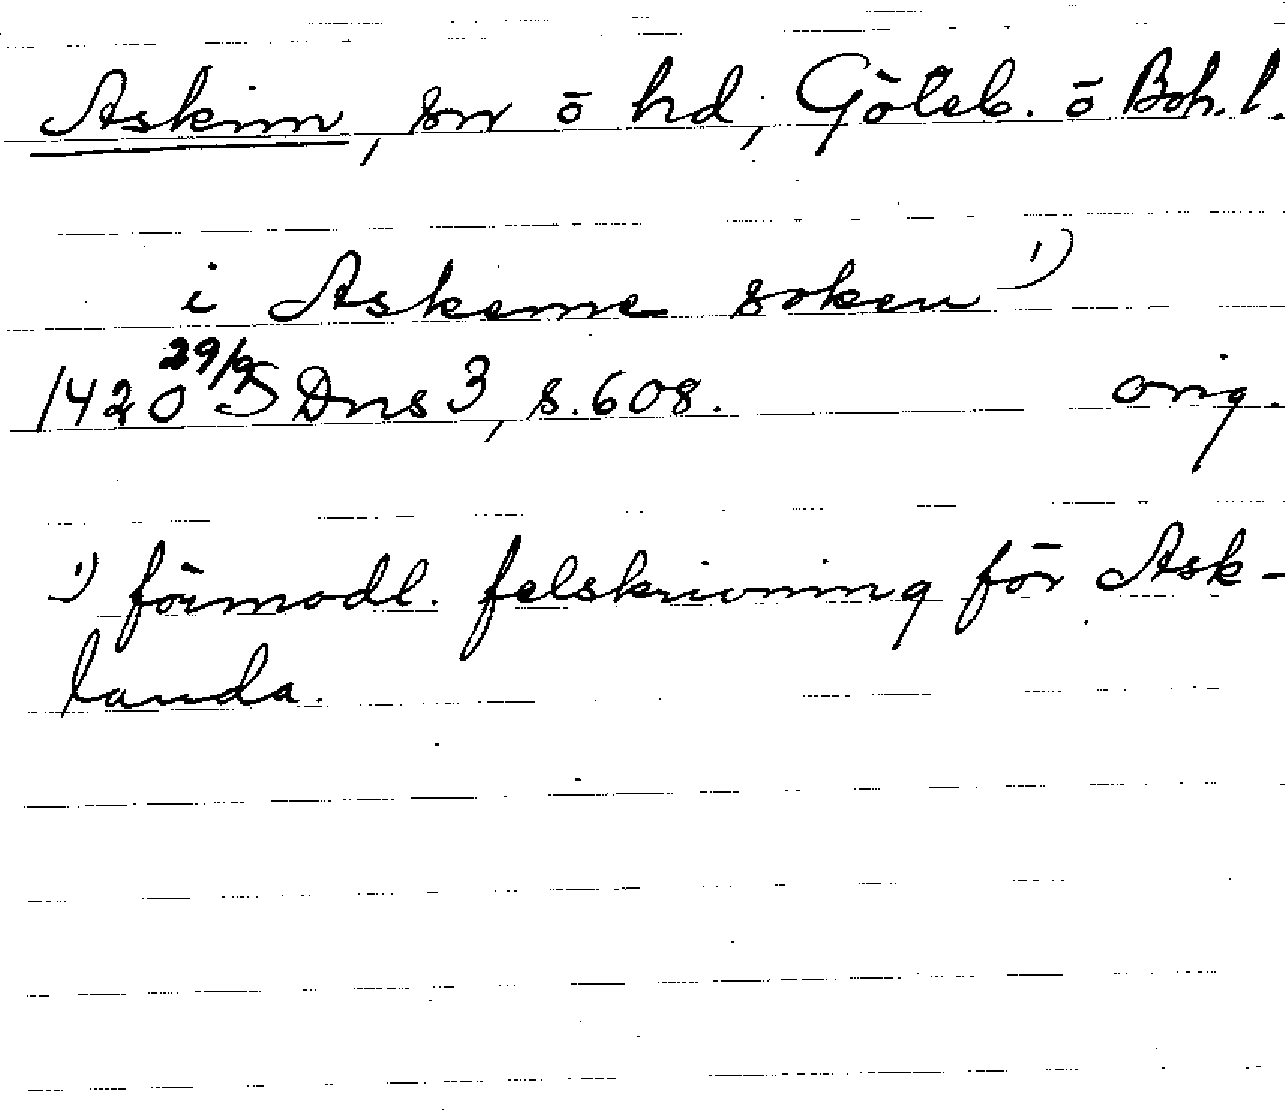 Askim, sn ō hd, Göteb. ō Boh. l.
i Askeme soken 1)
1420 29/9 SDns 3, s. 608. orig.
1) förmodl. felskrivning för Ask-
landa.